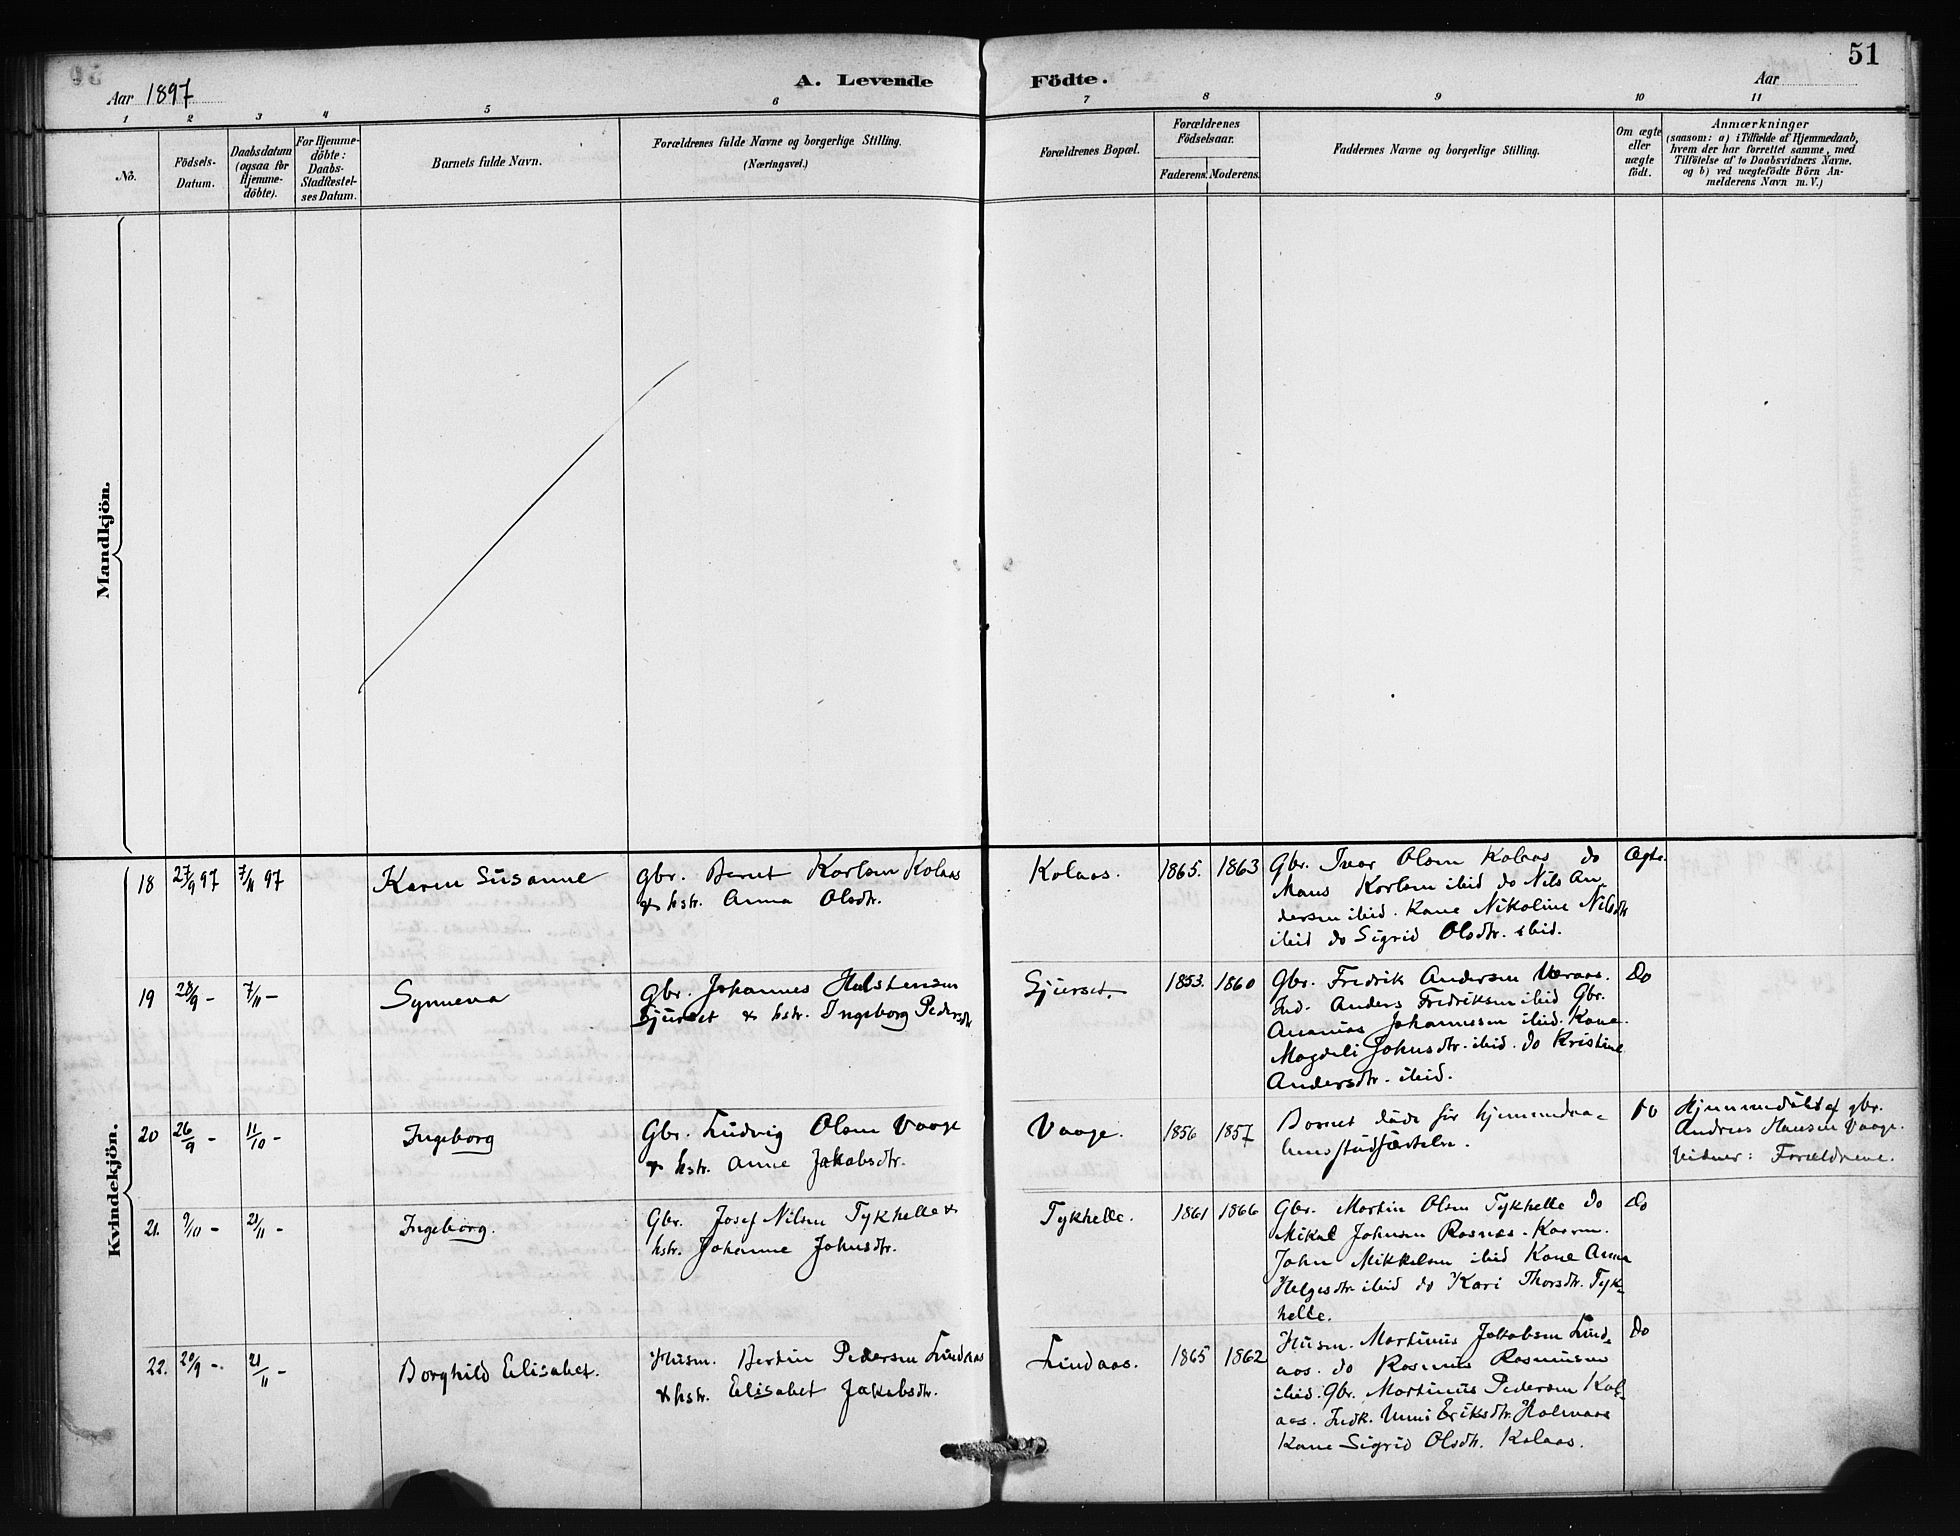 51
Aar 1897
A. Levende Födte.
Aar
1 2 3 4 5 6 7 8 9 10 11
No.
Födsels-
Datum.
Daabsdatum
(ogsaa for
Hjemme-
döbte).
For Hjemme-
döbte:
Daabs-
Stadfæstel-
ses Datum.
Barnets fulde Navn.
Forældrenes fulde Navne og borgerlige Stilling.
(Næringsvei.)
Forældrenes Bopæl.
Forældrenes
Födselsaar.
Faderens. Moderens.
Faddernes Navne og borgerlige Stilling.
Om ægte
eller
uægte
födt.
Anmærkninger
(saasom: a) i Tilfælde af Hjemmedaab,
hvem der har forrettet samme, med
Tilföielse af to Daabsvidners Navne.
og b) ved uægtefödte Börn An-
melderens Navn m. V.)
Mandkjön.
Kvindekjön.
18 27/9 97 7/11 97
Karen Susanne
Gbr. Bernt Karlsen Kolaas
& hstr. Anna Olsdtr.
Kolaas. 1865. 1863
Gbr. Ivar Olsen Kolaas do
Mans Karlsen ibid do Nils An-
dersen ibid. Kone Nikoline Nilsdtr
ibid do Sigrid Olsdtr. ibid.
Ægte.
19 28/9 - 7/11 -
Synneva
Gbr. Johannes Halstensen
Gjerset & hstr. Ingeborg Pedersdtr
Gjerset. 1853. 1860
Gbr. Fredrik Andersen
Ind. Anders Fredriksen ibid Gbr.
Ananias Johannesen ibid. Kone
Magdeli Johnsdtr. ibid. do Kristine
Andersdtr. ibid.
Do
20 26/9 - 11/10 -
Ingeborg
Gbr. Ludvig Olsen Vaage
& hstr. Anne Jakobsdtr.
Vaage. 1856 1857
Barnet döde för hjemmedaa-
bens stadfæstelse.
Do
Hjemmedöbt af gbr.
Andreas Hansen Vaage.
Vidner: Forældrene.
21. 9/10 - 21/11 -
Ingeborg.
Gbr. Josef Nilsen Tykhelle &
hstr. Johanne Johnsdtr.
Tykhelle. 1861 1866
Gbr. Martin Olsen Tykhelle do
Mikal Johnsen Rosnes. Kaarm.
John Mikkelsen ibid Kone Anna
Helgesdtr ibid do Kari Thorsdtr. Tyk-
helle.
Do
22. 20/9 -. 21/11 -
Borghild Elisabet.
Husm. Bertin Pedersen Lindaas
& hstr. Elisabet Jakobsdtr.
Lindaas. 1865 1862
Husm. Martinus Jakobsen Lind-
aas. do Rasmus Rasmusen
ibid. Gbr. Martinus Pedersen Kol-
aas. Indk. Unni Eriksdtr. Holmaas
Kone Sigrid Olsdtr. Kolaas.
Do